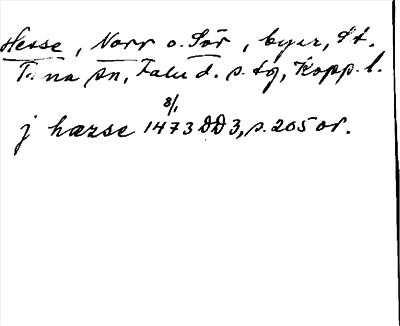 Hesse, Norr o. Sör, byar, St.
Tuna sn, Falu d. s. tg, Kopp. l.
8/1
j hæzse 1473 DD 3, s. 205 or.